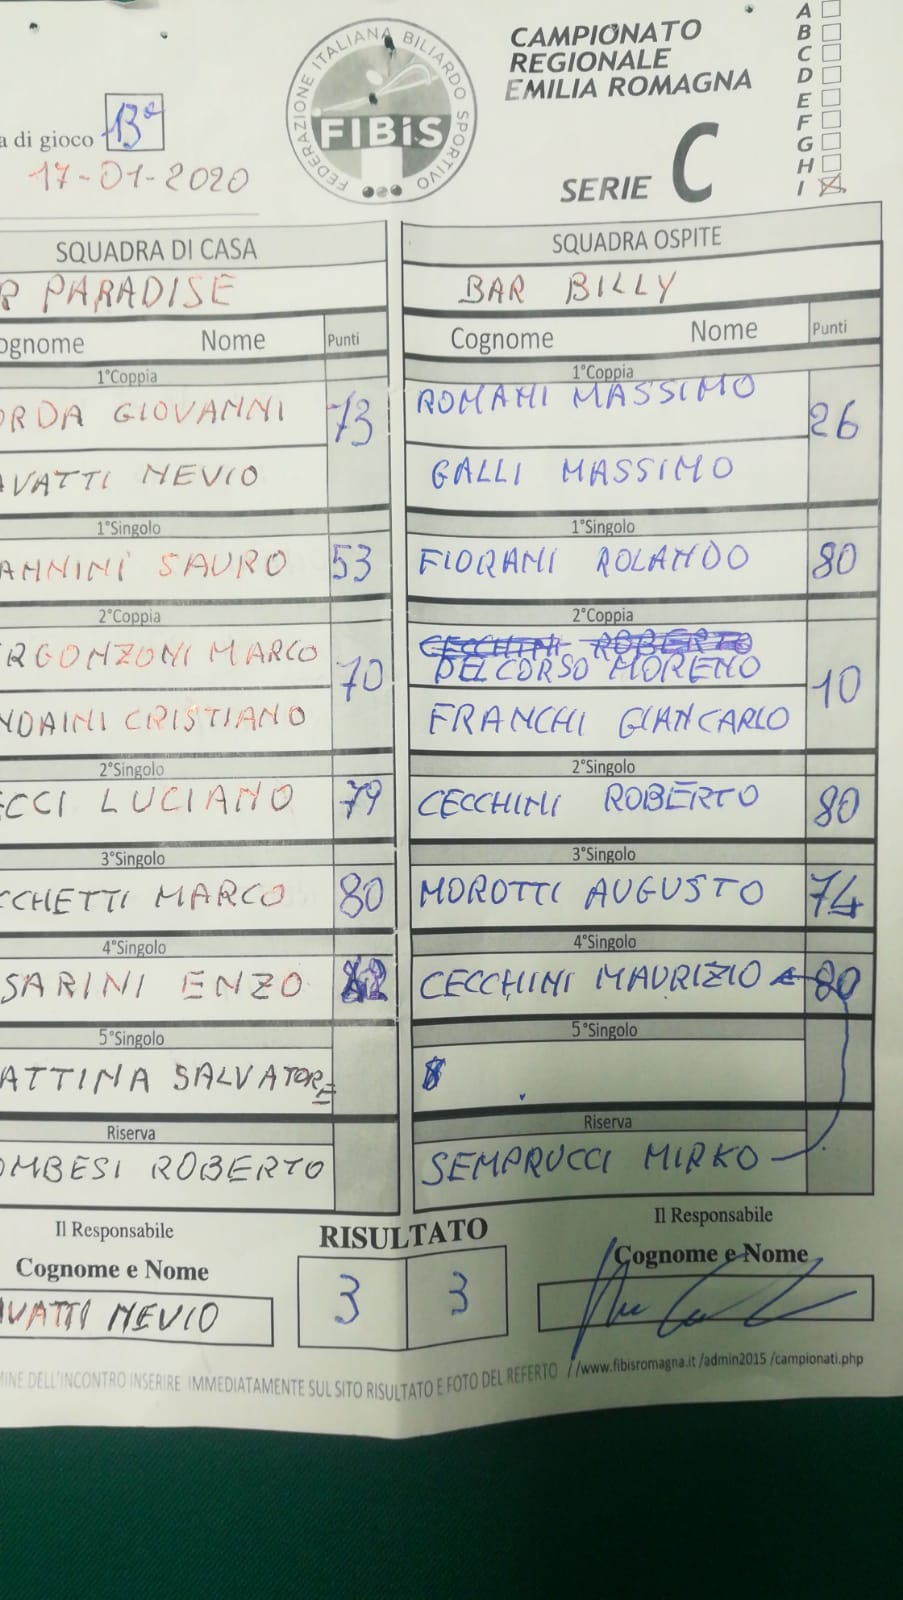 FEDERAZIONE ITALIANA BILIARDO SPORTIVO
FIBiS
CAMPIONATO
REGIONALE
EMILIA ROMAGNA
SERIE C
A
B
C
D
E
F
G
H
I
a di gioco 13ª
17-01-2020
SQUADRA DI CASA SQUADRA OSPITE
R PARADISE BAR BILLY
ognome Nome Punti Cognome Nome Punti
1°Coppia 1°Coppia
ORDA GIOVANNI 73 ROMANI MASSIMO 26
AVATTI NEVIO GALLI MASSIMO
1°Singolo 1°Singolo
ANNINI SAURO 53 FIORANI ROLANDO 80
2°Coppia 2°Coppia
CECCHINI ROBERTO
RGONZONI MARCO 70 DEL CORSO MORENO 10
NDAINI CRISTIANO FRANCHI GIANCARLO
2°Singolo 2°Singolo
ECCI LUCIANO 79 CECCHINI ROBERTO 80
3°Singolo 3°Singolo
CCHETTI MARCO 80 MOROTTI AUGUSTO 74
4°Singolo 4°Singolo
SARINI ENZO CECCHINI MAURIZIO 80
5°Singolo 5°Singolo
ATTINA SALVATORE
Riserva Riserva
OMBESI ROBERTO SEMPRUCCI MIRKO
Il Responsabile RISULTATO Il Responsabile
Cognome e Nome 3 3 Cognome e Nome
AVATTI NEVIO
MINE DELL'INCONTRO INSERIRE IMMEDIATAMENTE SUL SITO RISULTATO E FOTO DEL REFERTO //www.fibisromagna.it /admin2015 /campionati.php